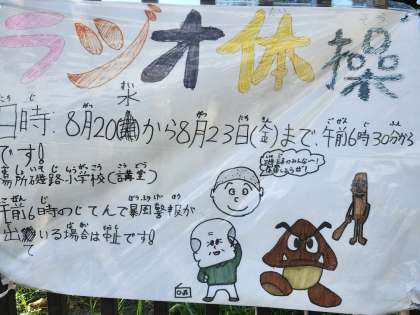 ラジオ体操
日時、8月20(水)から8月23日(金)まで、午前6時30分から
です!
場所磯路小学校(講堂)
午前6時のじてんで暴風警報が
出ている場合は中止です!